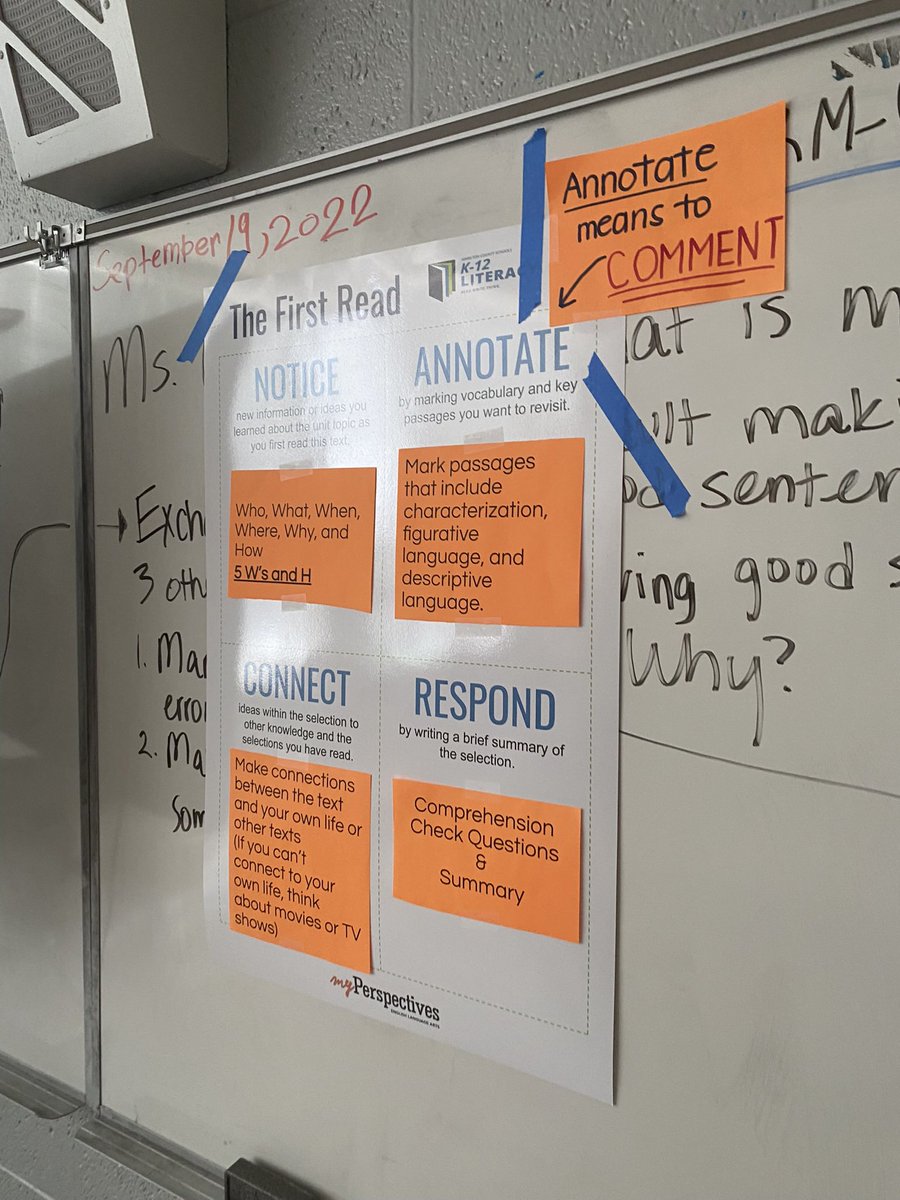 September 19, 2022
Annotate
means to
COMMENT
Ms.
The First Read
HAMILTON COUNTY SCHOOLS
K-12
NOTICE
new information or ideas you
learned about the unit topic as
you first read this text.
Who, What, When,
Where, Why, and
How
5 W's and H
ANNOTATE
by marking vocabulary and key
passages you want to revisit.
Mark passages
that include
characterization,
figurative
language, and
descriptive
language.
CONNECT
ideas within the selection to
other knowledge and the
selections you have read.
Make connections
between the text
and your own life or
other texts
(If you can't
connect to your
own life, think
about movies or TV
shows)
RESPOND
by writing a brief summary of
the selection.
Comprehension
Check Questions
&
Summary
myPerspectives
ENGLISH LANGUAGE ARTS
3
1.
2.
is
good
Why?